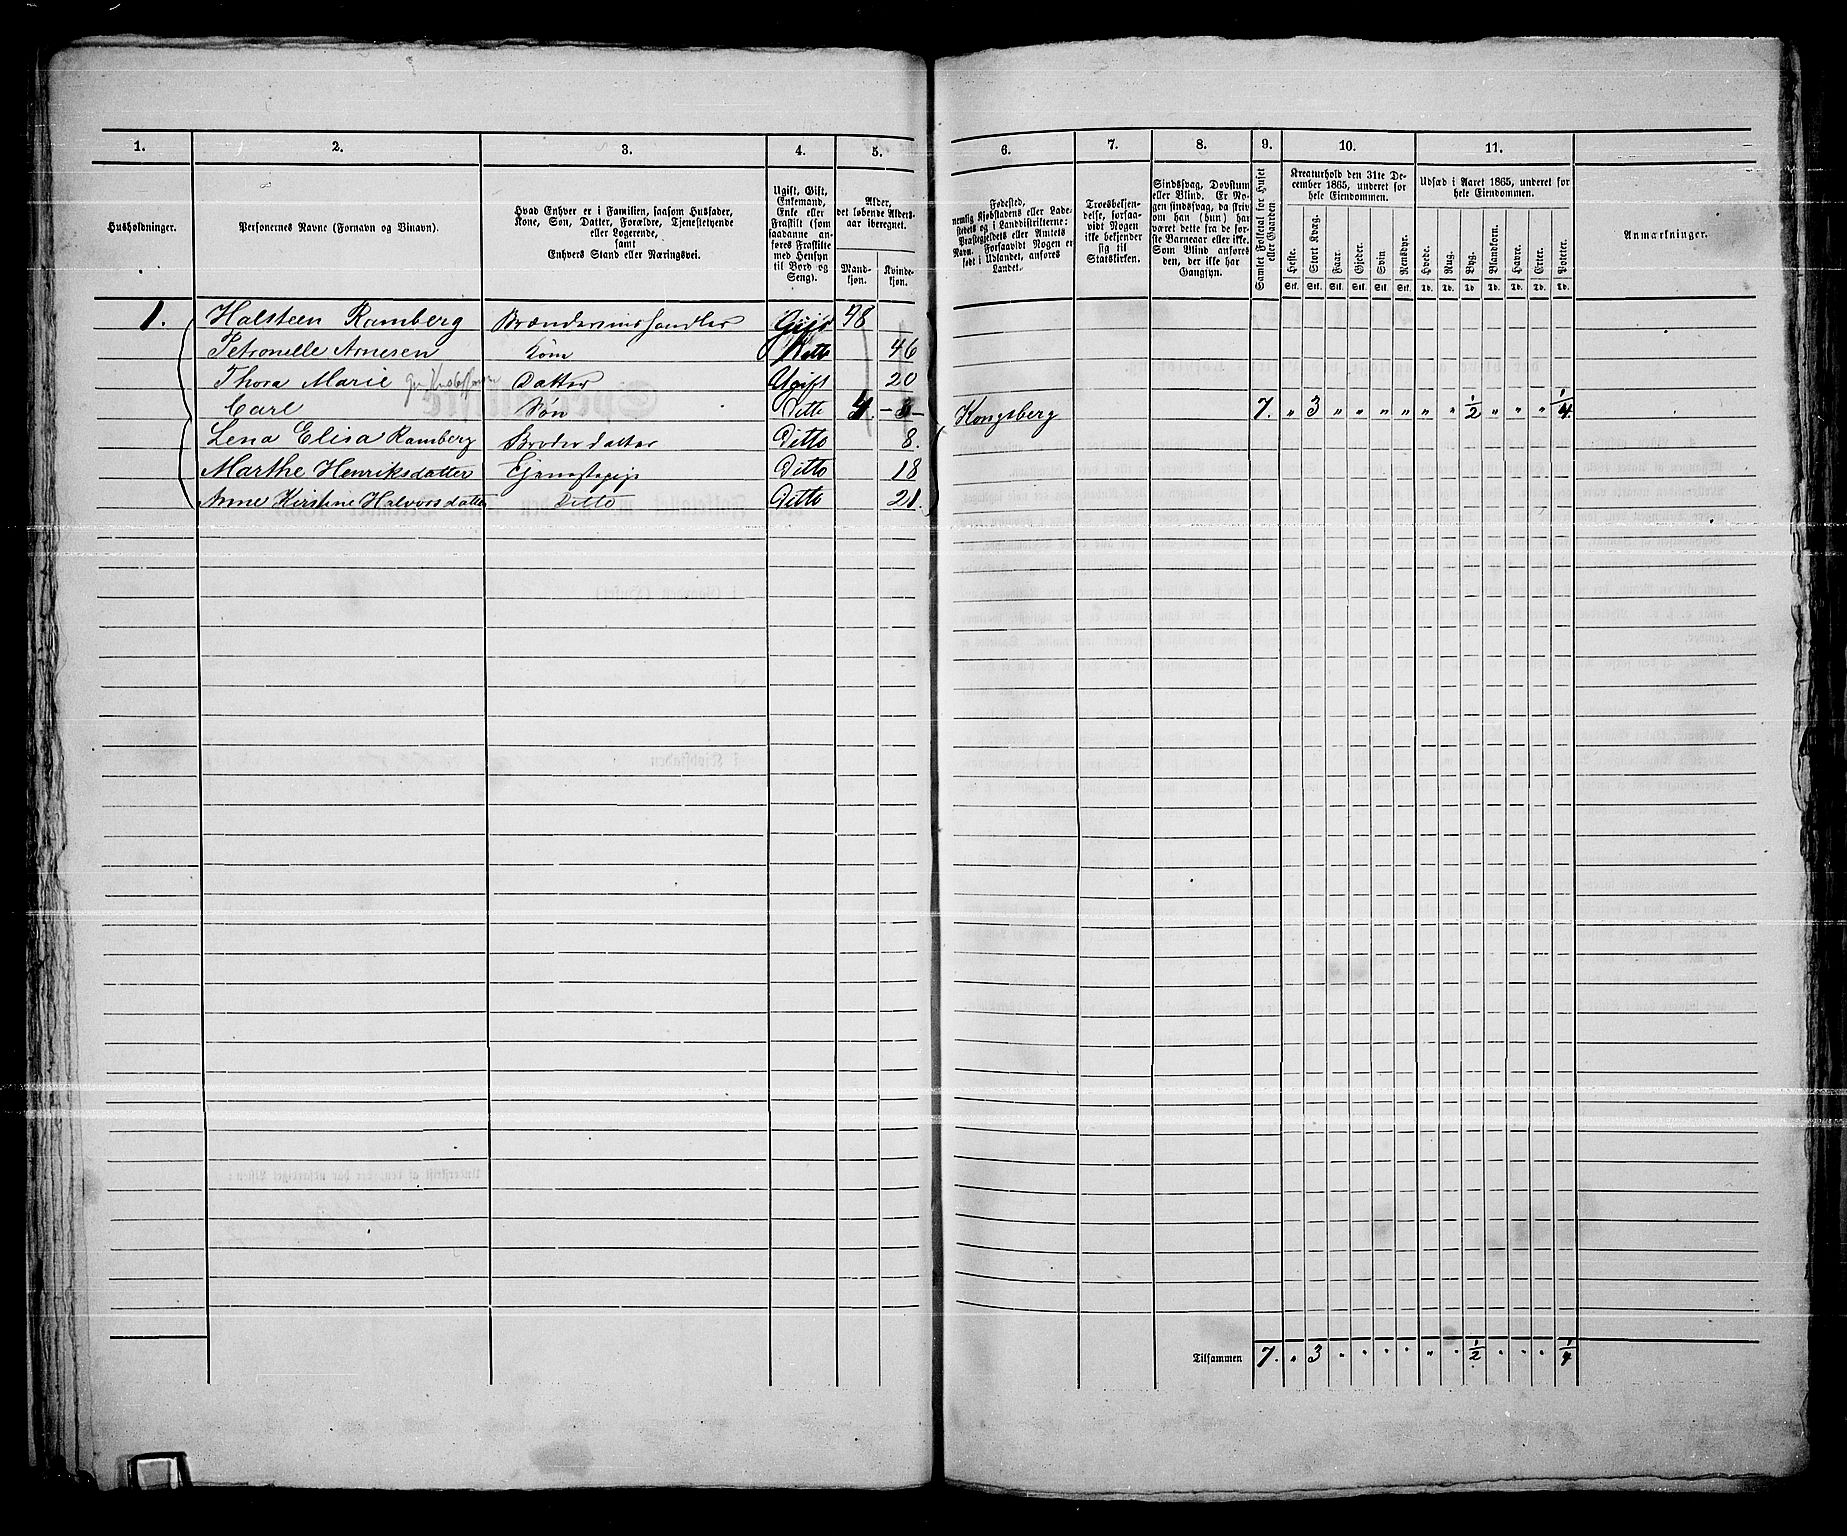 1. 2. 3. 4. 5. 6. 7. 8. 9. 10. 11.
Husholdninger.
Personernes Navne (Fornavn og Binavn).
Hvad Enhver er i Familien, saasom Husfader,
Kone, Søn, Datter, Forældre, Tjenestetyende
eller Logerende,
samt
Enhvers Stand eller Næringsvei.
Ugift, Gift,
Enkemand,
Enke eller
Fraskilt (som
saadanne an-
føres Fraskilte
med Hensyn
til Bord og
Seng).
Alder,
det løbende Alders-
aar iberegnet.
Mand-
kjøn.
Kvinde-
kjøn.
Fødested,
nemlig Kjøbstadens eller Lade-
stedets og i Landdistrikterne:
Præstegjeldets eller Amtets
Navn. Forsaavidt Nogen er
født i Udlandet, anføres
Landet.
Troesbekjen-
delse, forsaa-
vidt Nogen
ikke bekjender
sig til
Statskirken.
Sindssvag, Døvstum
eller Blind. Er No-
gen sindssvag, da skriv
om han (hun) har
været dette fra de før-
ste Barneaar eller ikke.
Som Blind anføres
den, der ikke har
Gangsyn.
Samlet Folketal for Huset
eller Gaarden
Kreaturhold den 31te De-
cember 1865, underet for
hele Eiendommen.
Heste. Stort Kvæg. Faar. Gjeder. Svin Rensdyr.
Stk. Stk. Stk. Stk. Stk. Stk.
Udsæd i Aaret 1865, underet for
hele Eiendommen.
Hvede. Rug. Byg. Blandkorn. Havre. Erter. Poteter.
Td. Td. Td Td. Td. Td. Td.
Anmærkninger.
1. Halsteen Ramberg Brændevinshandler Gift 48
Petronelle Arnesen Kone Ditto 46
Thora Marie Datter Ugift 20
Carl Søn Ditto 4. Kongsberg 7. " 3 " " " " " " 1/2 " " " 1/4
Lena Elisa Ramberg Broderdatter Ditto 8.
Marthe Henriksdatter Tjenestepige Ditto 18
Anne Kirstine Halvorsdatter Ditto Ditto 21.
Tilsammen 7. " 3 " " " " " " 1/2 " " " 1/4